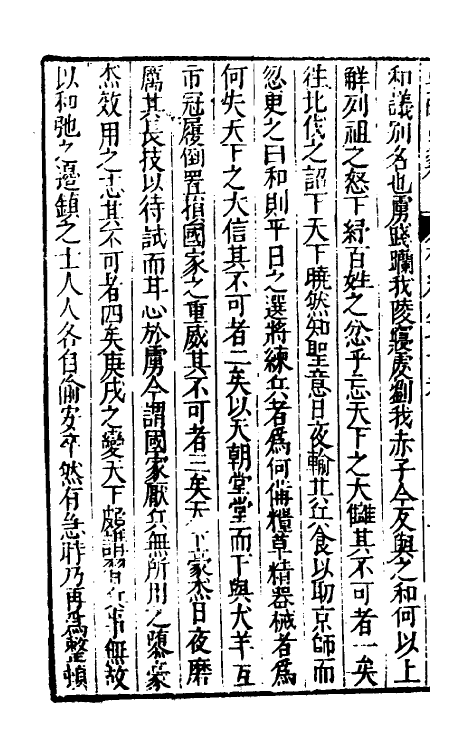 和議別名也虜踐躪我陵寢虔劉我赤子今反與之和何以上
觧列祖之怒下紓百姓之忿乎忘天下之大讎其不可者一矣
往北伐之詔下天下曉然知聖意日夜輸其兵食以助京師而
忽更之曰和則平日之選將練兵者為何備糧草精器械者為
何失天下之大信其不可者二矣以天朝堂堂而下與犬羊互
市冠履倒置損國家之重威其不可者三矣天下豪杰日夜磨
厲其長技以待試而甘心於虜今謂國家厭兵無所用之隳豪
杰效用之志其不可者四矣庚戌之變天下頗講習兵事無故
以和弛之邊鎮之士人人各自偷安卒然有急時乃再為整頓